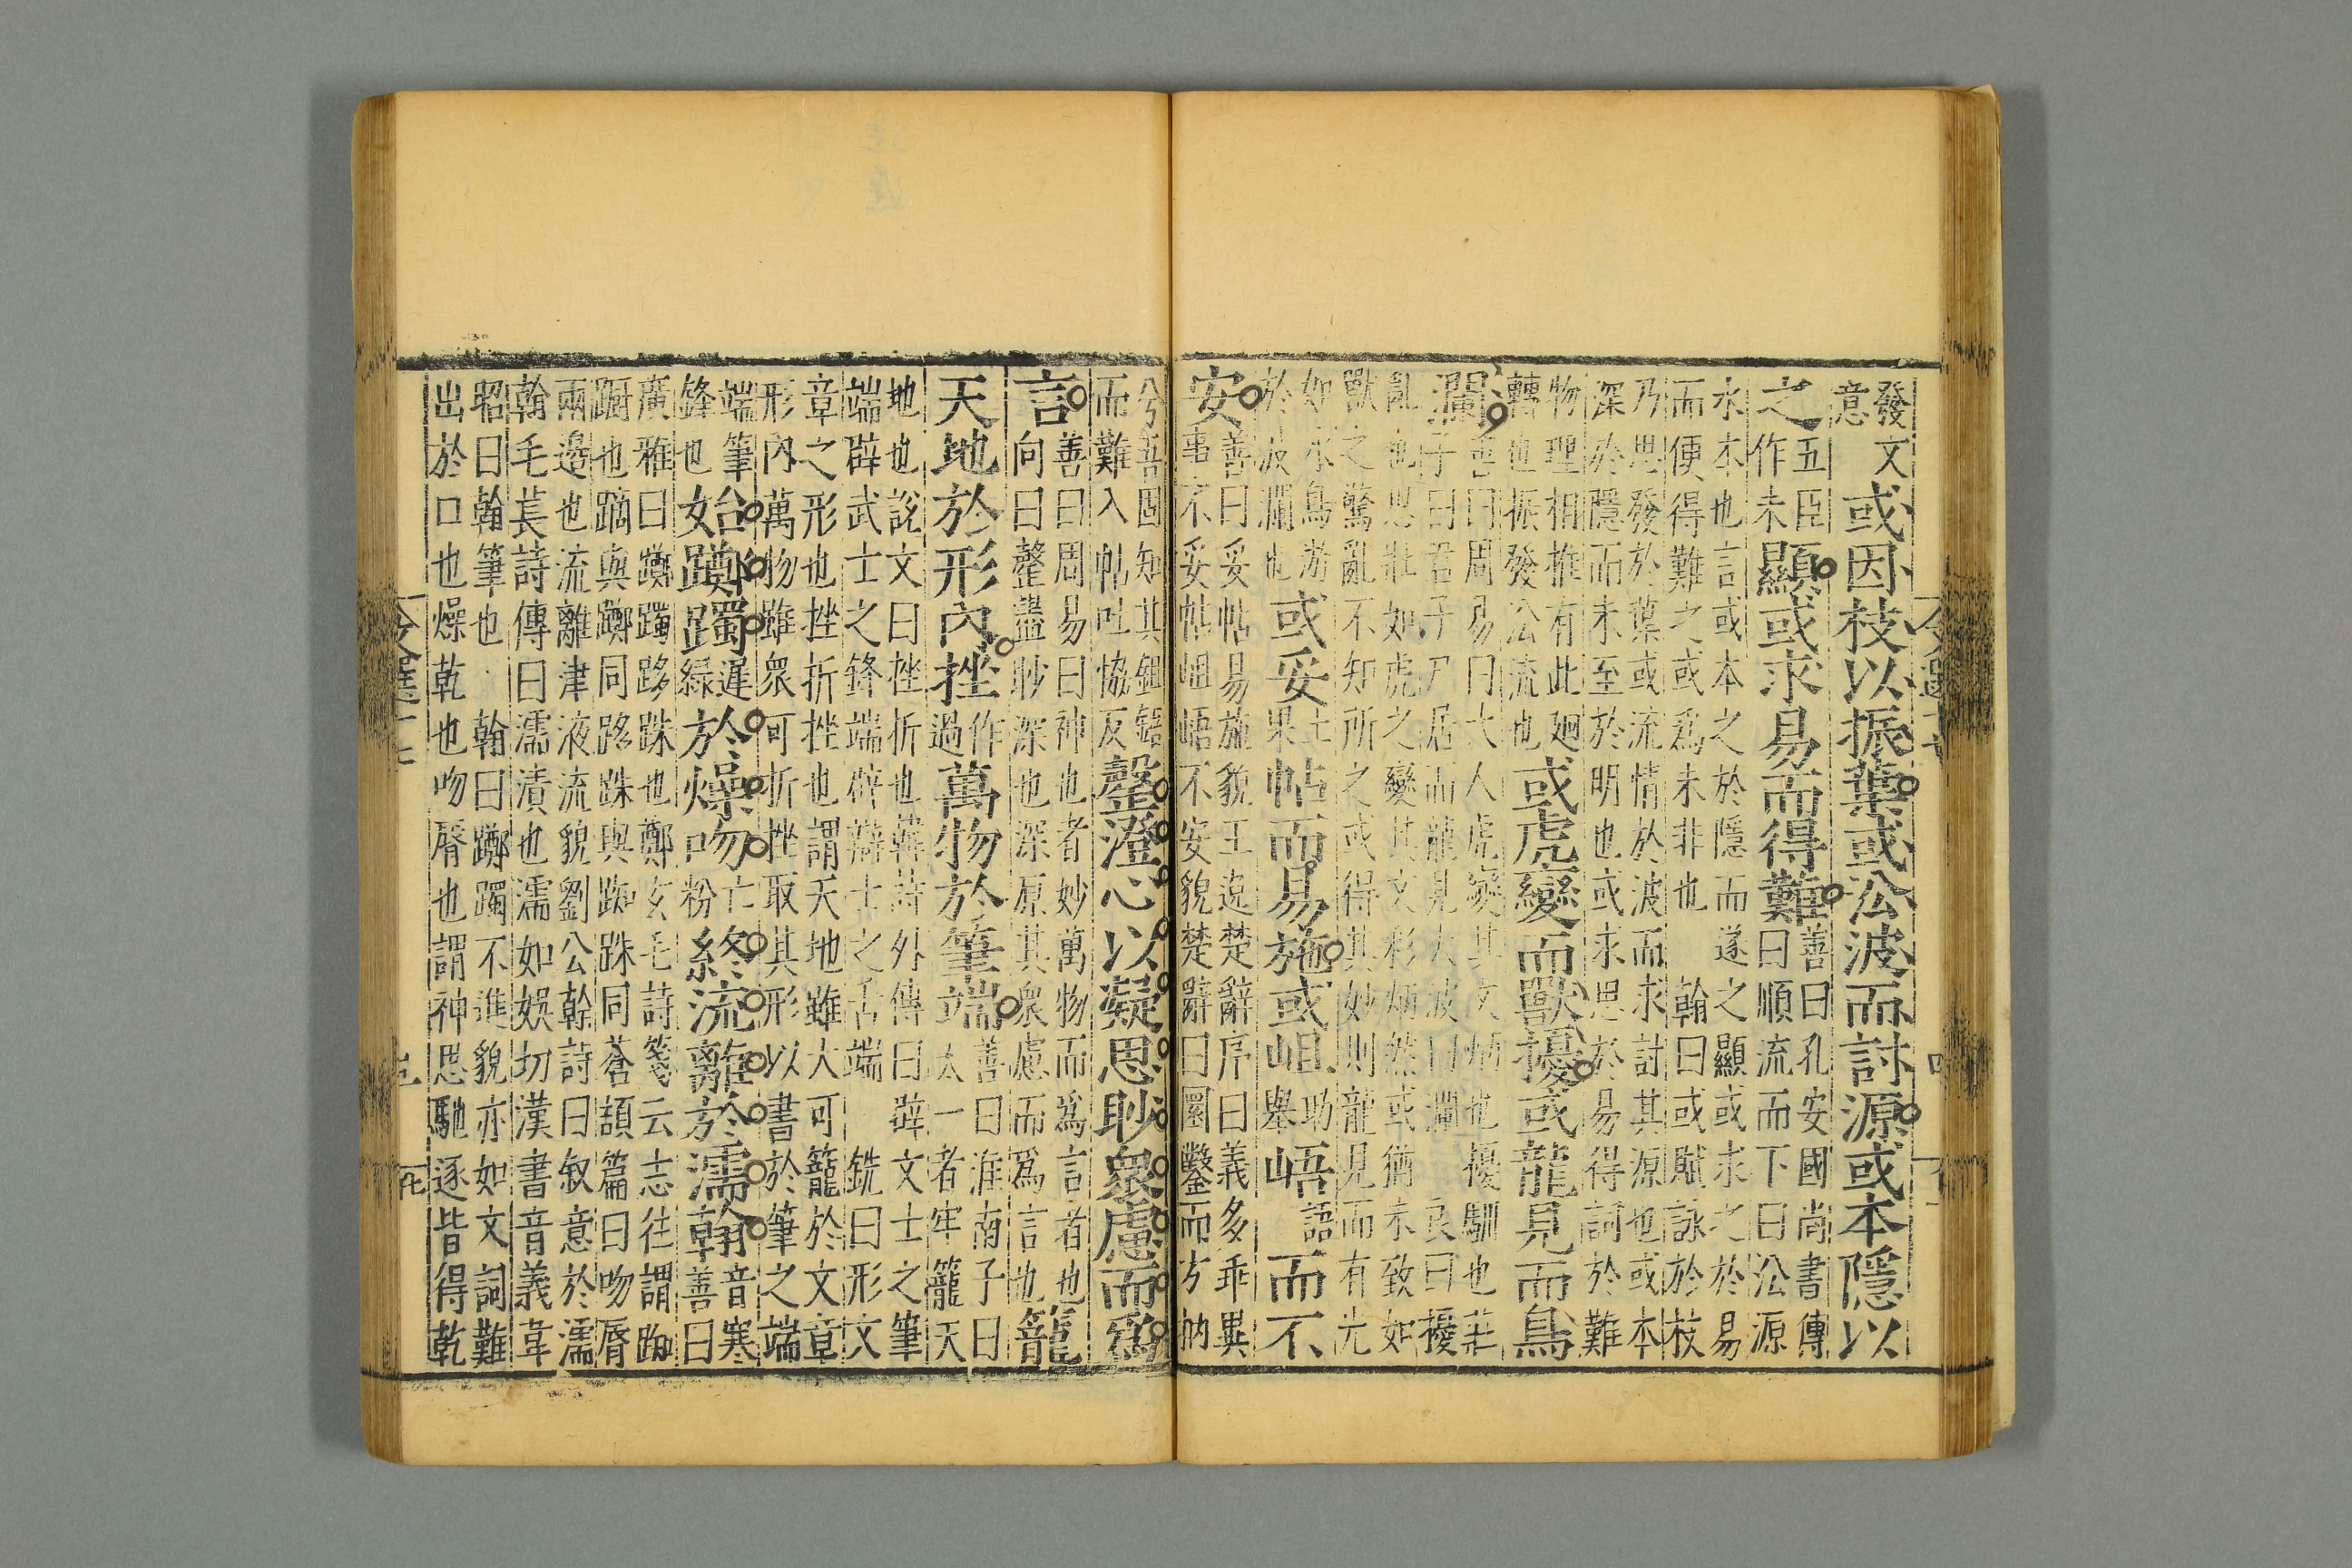 發文
意
或因枝以振葉或㳂波而討源或本隱以
之
五臣
作未
顯或求易而得難
善曰孔安國尚書傳
曰順流而下曰㳂源
水本也言或本之於隱而遂之顯或求之於易
而便得難之或爲未非也 翰曰或賦詠於枝
乃思發於葉或流情於波而求討其源也或本
深於隱而未至於明也或求思於易得詞於難
物理相推有此廻
轉也振發㳂流也
或虎變而獸擾或龍見而鳥
瀾
善曰周易曰大人虎變其文炳也擾馴也莊
子曰君子尸居而龍見大波曰瀾 良曰擾
亂也思壯如虎之變其文彩炳然或猶未致如
獸之驚亂不知所之或得其妙則龍見而有光
如水鳥游
於波瀾也
或妥
土
果
帖而易施或岨
助
舉
峿
語
而不
安
善曰妥帖易施貌王逸楚辭序曰義多乖異
事不妥帖岨峿不安貌楚辭曰圜鑿而方枘
兮吾固知其鉏鋙
而難入帖吐協反
罄澄心以凝思眇衆慮而爲
言
善曰周易曰神也者妙萬物而爲言者也
向曰罄盡眇深也深原其衆慮而爲言也
籠
天地於形內挫
作
過
萬物於筆端
善曰淮南子曰
太一者牢籠天
地也說文曰挫折也韓詩外傳曰辟文士之筆
端辟武士之鋒端辟辯士之舌端 銑曰形文
章之形也挫折挫也謂天地雖大可籠於文章
形內萬物雖衆可折挫取其形以書於筆之端
端筆
鋒也
始躑躅
遲
綠
於燥吻
亡
粉
終流離於濡翰
音寒
善曰
廣雅曰躑躅跢跦也鄭玄毛詩箋云志往謂踟
蹰也蹢與躑同跢跦與踟跦同蒼頡篇曰吻脣
兩邊也流離津液流貌劉公幹詩曰叙意於濡
翰毛萇詩傳曰濡漬也濡如娛切漢書音義韋
昭曰翰筆也 翰曰躑躅不進貌亦如文詞難
出於口也燥乾也吻脣也謂神思馳逐皆得乾